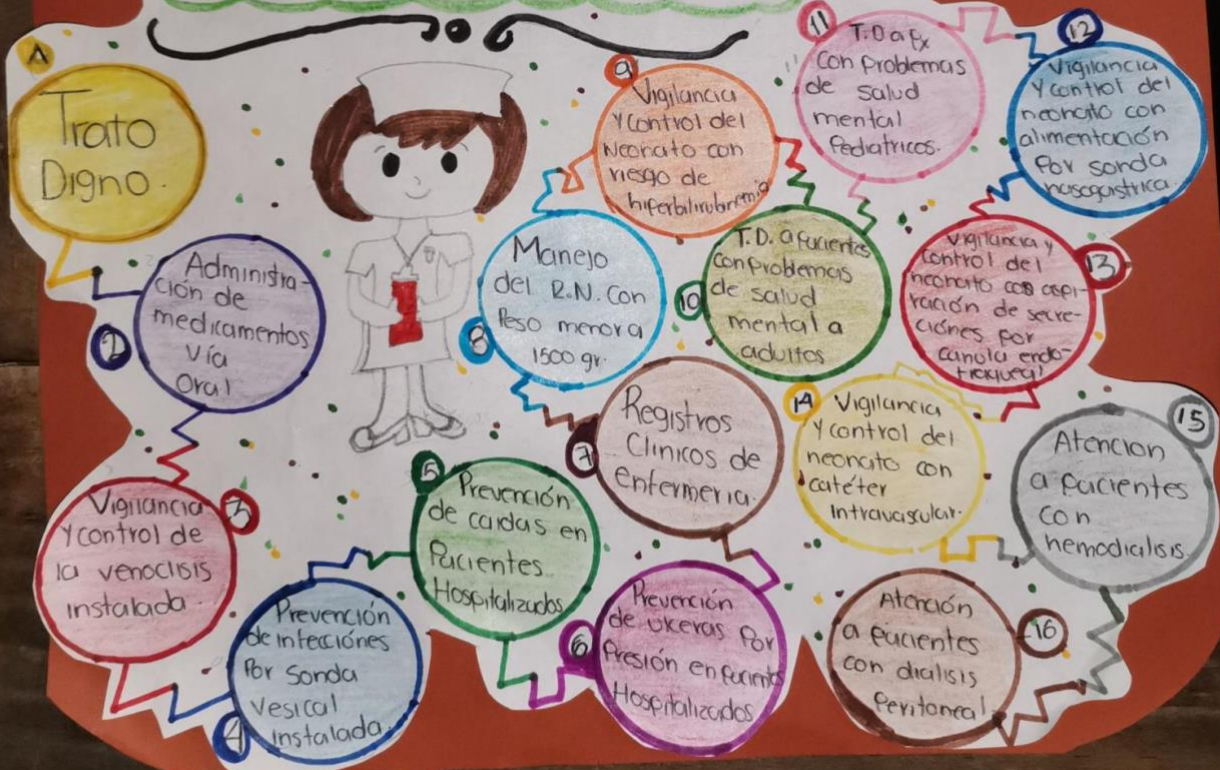 1
Trato
Digno.
2
Administra-
ción de
medicamentos
Vía
Oral
3
Vigilancia
y control de
la venoclisis
instalada.
4
Prevención
de infecciónes
Por Sonda
Vesical
instalada.
5
Prevención
de caidas en
Pacientes
Hospitalizados
6
Prevención
de ulceras Por
Presión en Pacientes
Hospitalizados
7
Registros
Clinicos de
enfermeria.
8
Manejo
del R.N. Con
Peso menor a
1500 gr.
9
Vigilancia
y control del
Neonato con
riesgo de
hiperbilirubinemia
10
T.D. a Pacientes
con problemas
de salud
mental a
adultos
11
T.D a Px
con problemas
de salud
mental
Pediatricos.
12
Vigilancia
y control del
neonato con
alimentación
Por sonda
nasogastrica
13
Vigilancia y
control del
neonato con aspi-
ración de secre-
ciónes por
canula endo-
traqueal
14
Vigilancia
y control del
neonato con
catéter
Intravascular.
15
Atencion
a pacientes
con
hemodialisis
16
Atención
a pacientes
con dialisis
Peritoneal